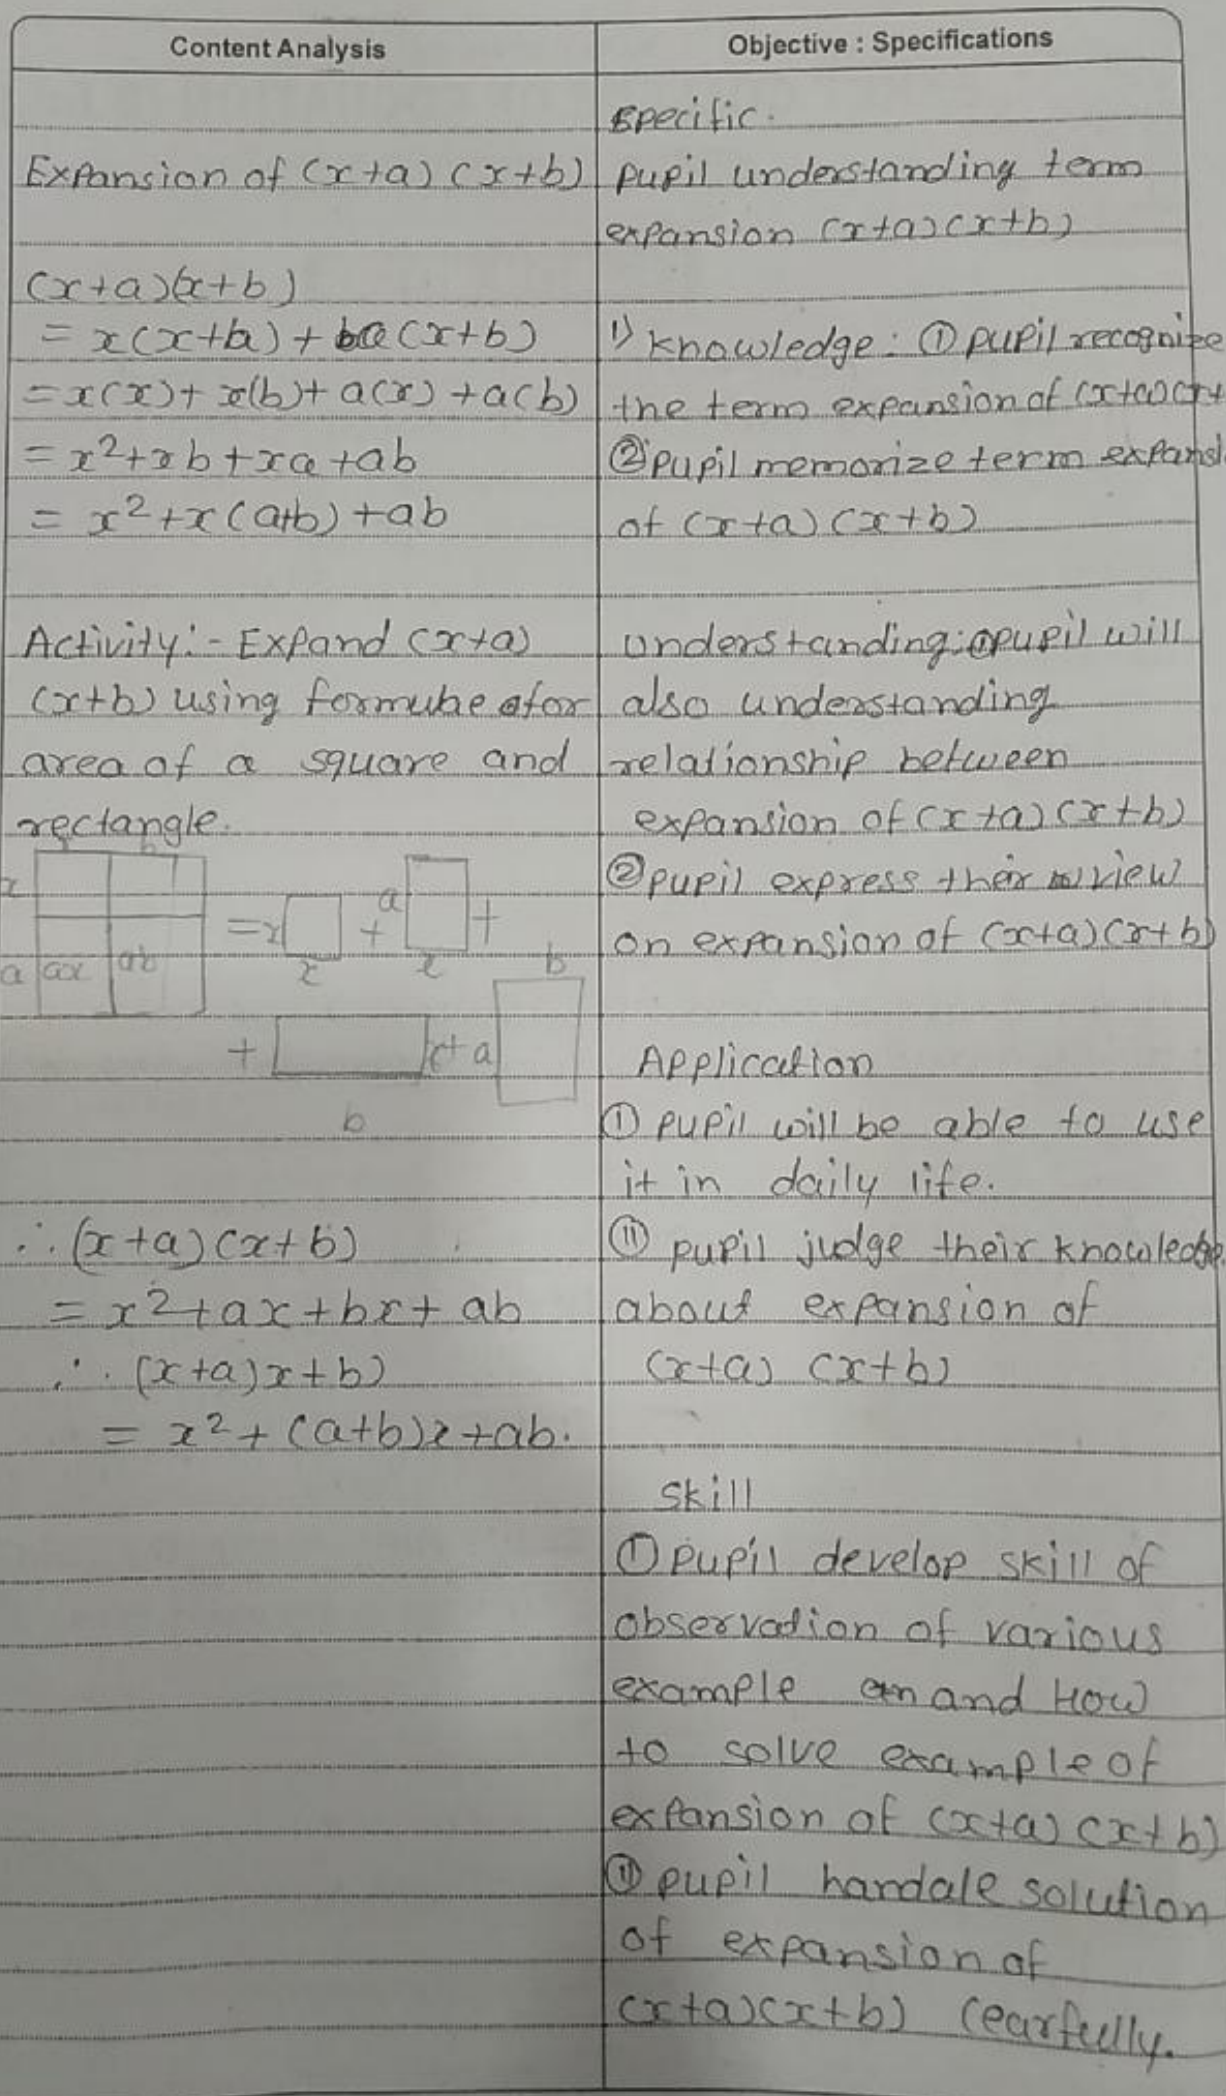 Content Analysis
Expansion of (x+a) (x+b)
(x+a)(x+b)
= x(x+b) + a(x+b)
= x(x) + x(b) + a(x) + a(b)
= x2+xb+xa+ab
= x2+x(a+b)+ab
Activity:- Expand (x+a)
(x+b) using formulae for
area of a square and
rectangle.
x b
x
a ax ab
= x + a +
x x b
+ x + a
b
∴ (x+a) (x+b)
= x2+ax+bx+ab
∴ (x+a)x+b)
= x2+(a+b)x+ab.
Objective : Specifications
specific.
pupil understanding term
expansion (x+a)(x+b)
1) knowledge: ① pupil recognize
the term expansion of (x+a)(x+
② pupil memorize term expansi
of (x+a) (x+b)
understanding: ① pupil will
also understanding
relationship between
expansion of (x+a) (x+b)
② pupil express their view
on expansion of (x+a)(x+b)
Application
① pupil will be able to use
it in daily life.
⑪ pupil judge their knowledge
about expansion of
(x+a) (x+b)
skill
① pupil develop skill of
observation of various
example and How
to solve example of
expansion of (x+a) (x+b)
⑪ pupil handale solution
of expansion of
(x+a)(x+b) cearfully.